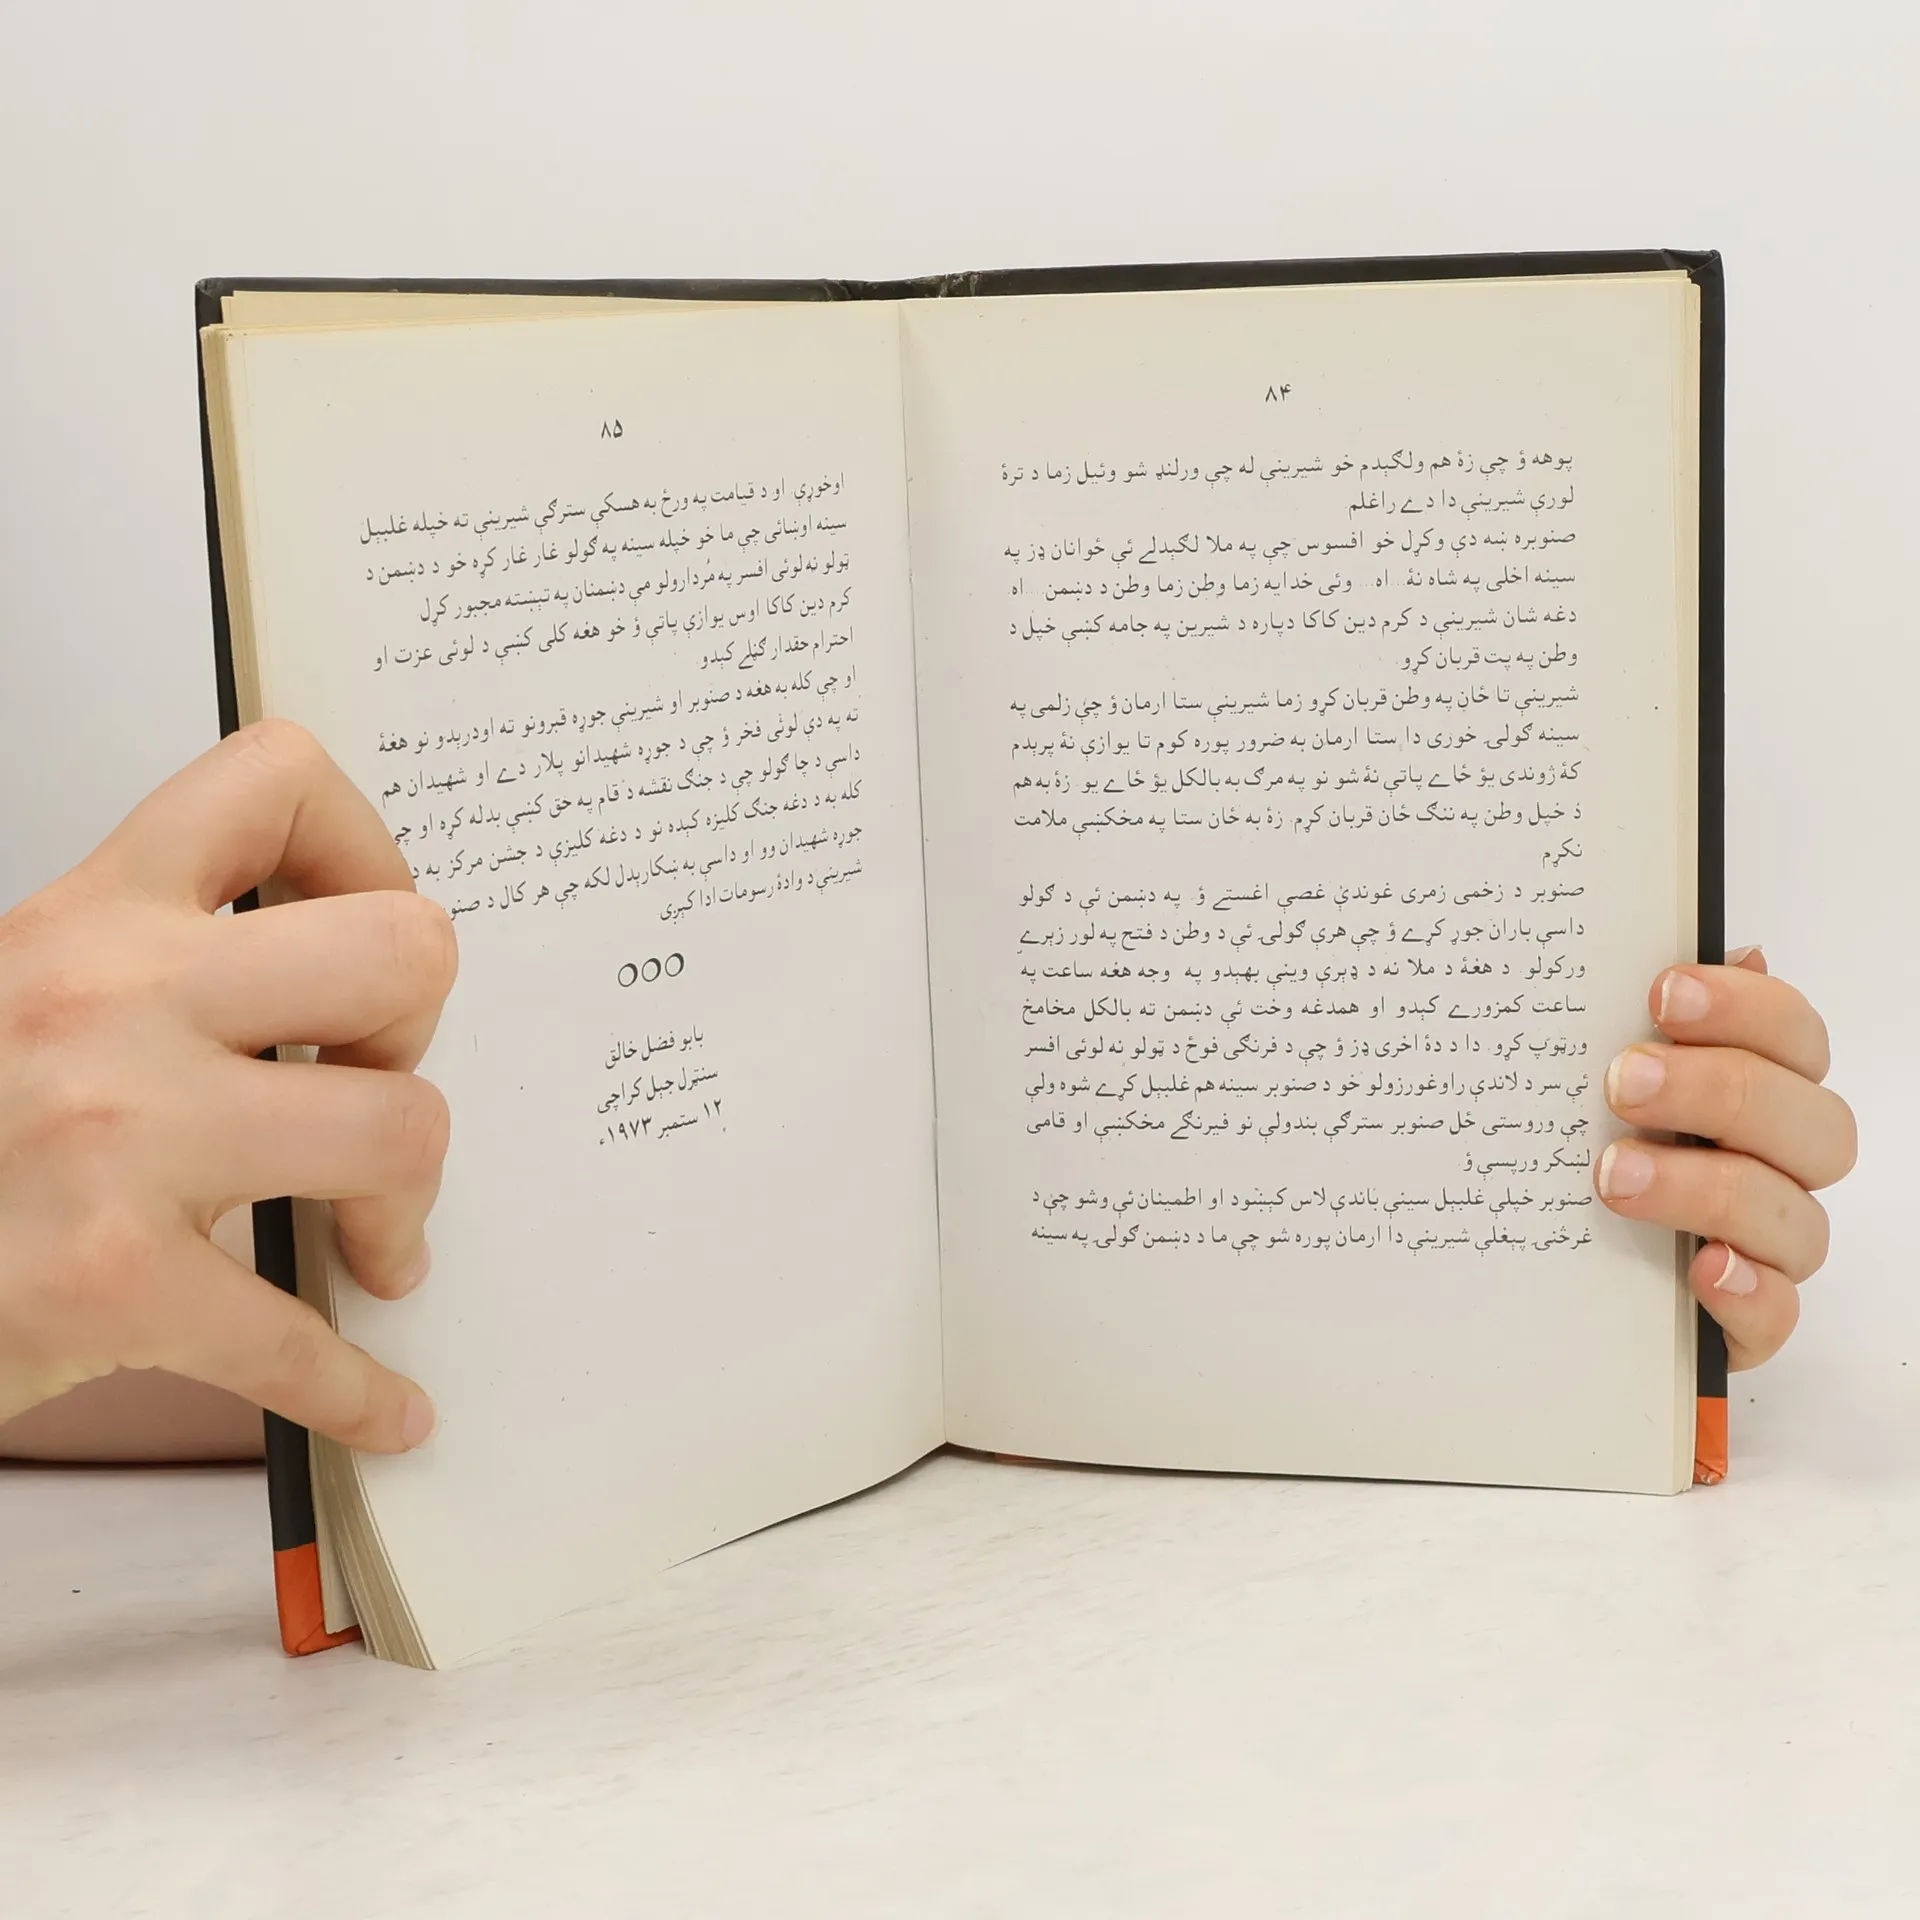 ۸۴
پوهه ؤ چې زۀ هم ولګېدم خو شیرینې له چې ورلنډ شو وئیل زما د ترۀ
لورې شیرینې دا دے راغلم
صنوبره ښه دې وکړل خو افسوس چې په ملا لګېدلے ئې ځوانان ډز په
سینه اخلی په شاه نۀ... اه... وئی خدایه زما وطن زما وطن د دښمن... اه.
دغه شان شیرینې د کرم دین کاکا دپاره د شیرین په جامه کښې خپل د
وطن په پت قربان کړو.
شیرینې تا ځان په وطن قربان کړو زما شیرینې ستا ارمان ؤ چې زلمی په
سینه ګولۍ خوری دا ستا ارمان به ضرور پوره کوم تا یوازې نۀ پرېدم
کۀ ژوندی یؤ ځاے پاتې نۀ شو نو په مرګ به بالکل یؤ ځاے یو. زۀ به هم
د خپل وطن په ننګ ځان قربان کړم. زۀ به ځان ستا په مخکښې ملامت
نکړم
صنوبر د زخمی زمری غوندې غصې اغستے ؤ. په دښمن ئې د ګولو
داسې باران جوړ کړے ؤ چې هرې ګولۍ ئې د وطن د فتح په لور زېرے
ورکولو. د هغۀ د ملا نه د ډېرې وینې بهېدو په وجه هغه ساعت په
ساعت کمزورے کېدو او همدغه وخت ئې دښمن ته بالکل مخامخ
ورټوپ کړو. دا د دۀ اخری ډز ؤ چې د فرنګی فوځ د ټولو نه لوئی افسر
ئې سر د لاندې راوغورزولو خو د صنوبر سینه هم غلبېل کړے شوه ولې
چې وروستی ځل صنوبر سترګې بندولې نو فیرنګے مخکښې او قامی
لښکر ورپسې ؤ
صنوبر خپلې غلبېل سینې باندې لاس کېښود او اطمینان ئې وشو چې د
غرڅنۍ پېغلې شیرینې دا ارمان پوره شو چې ما د دښمن ګولۍ په سینه
۸۵
اوخوړې. او د قیامت په ورځ به هسکې سترګې شیرینې ته خپله غلبېل
سینه اوښائی چې ما خو خپله سینه په ګولو غار غار کړه خو د دښمن د
ټولو نه لوئی افسر په مُردارولو مې دښمنان په تېښته مجبور کړل
کرم دین کاکا اوس یوازې پاتې ؤ خو هغه کلی کښې د لوئی عزت او
احترام حقدار ګڼلے کېدو
او چې کله به هغه د صنوبر او شیرینې جوړه قبرونو ته اودرېدو نو هغۀ
ته په دې لوئی فخر ؤ چې د جوړه شهیدانو پلار دے او شهیدان هم
داسې د چا ګولو چې د جنګ نقشه د قام په حق کښې بدله کړه او چې
کله به د دغه جنګ کلیزه کېده نو د دغه کلیزې د جشن مرکز به د
جوړه شهیدان وو او داسې به ښکارېدل لکه چې هر کال د
شیرینې د وادۀ رسومات ادا کېږی.
بابو فضل خالق
سنټرل جېل کراچی
۱۲ ستمبر ۱۹۷۳ء